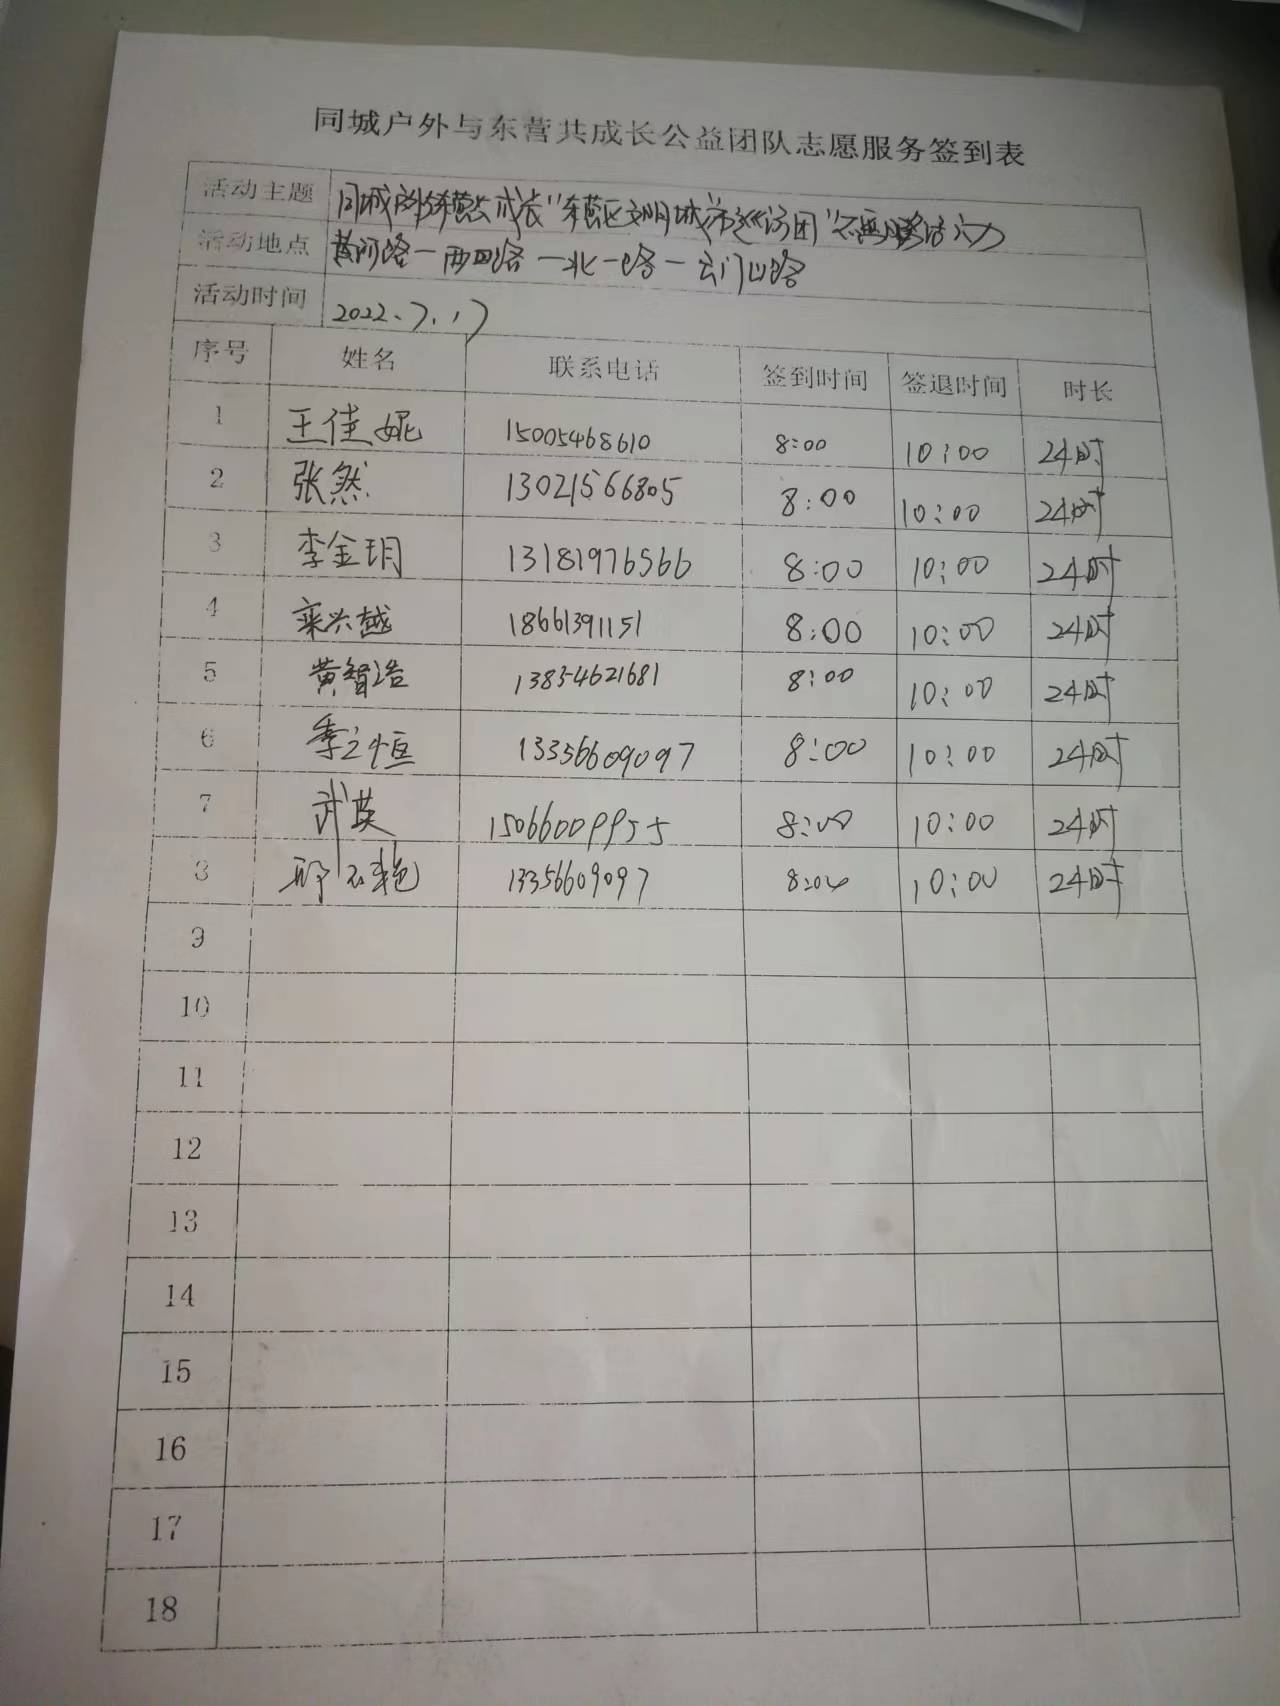 同城户外与东营共成长公益团队志愿服务签到表
活动主题 同城户外与东营共成长"东营区文明城市巡访团"志愿服务活动
活动地点 黄河路一西四路一北一路一云门山路
活动时间 2022.7.17
序号 姓名 联系电话 签到时间 签退时间 时长
1 王佳妮 15005468610 8:00 10:00 2小时
2 张然 13021566805 8:00 10:00 2小时
3 李金玥 13181976566 8:00 10:00 2小时
4 栾兴越 18661391151 8:00 10:00 2小时
5 黄智浩 13854621681 8:00 10:00 2小时
6 季之恒 13356609097 8:00 10:00 2小时
7 武英 15066009955 8:00 10:00 2小时
8 13356609097 8:00 10:00 2小时
9
10
11
12
13
14
15
16
17
18